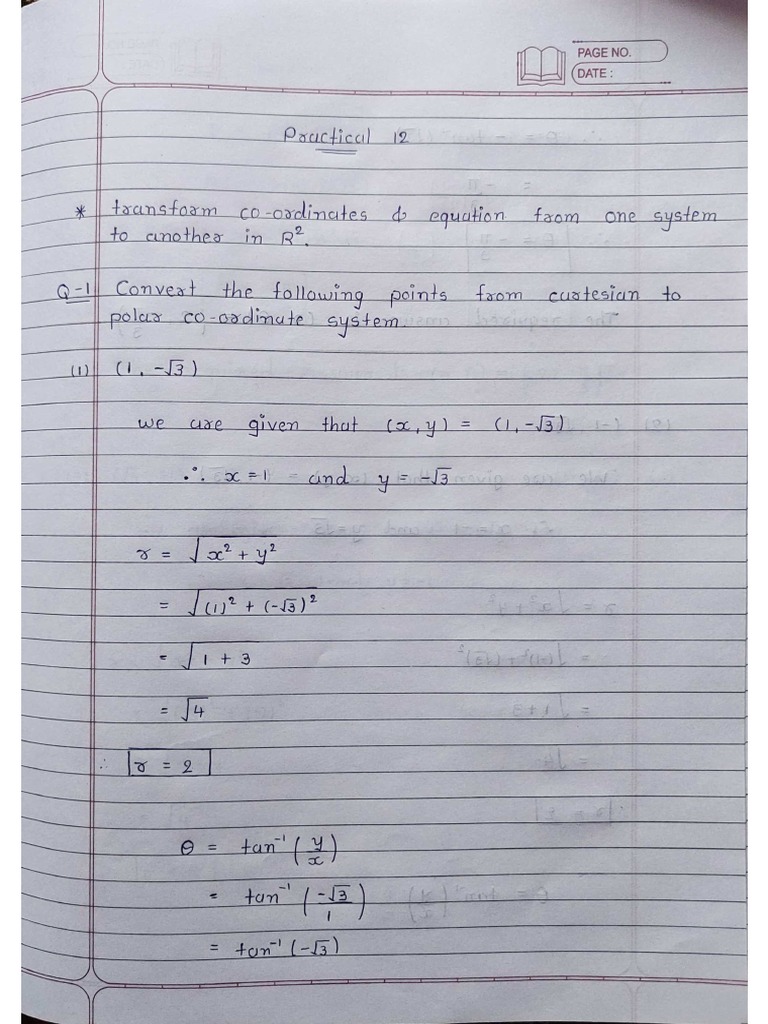 PAGE NO.
DATE :
Practical 12
* transform co-ordinates & equation from one system
to another in R².
Q-1 Convert the following points from cartesian to
polar co-ordinate system.
(1) (1, -√3)
we are given that (x, y) = (1, -√3)
∴ x = 1 and y = -√3
r = √x² + y²
= √(1)² + (-√3)²
= √1 + 3
= √4
∴ r = 2
θ = tan⁻¹ (y/x)
= tan⁻¹ (-√3/1)
= tan⁻¹ (-√3)